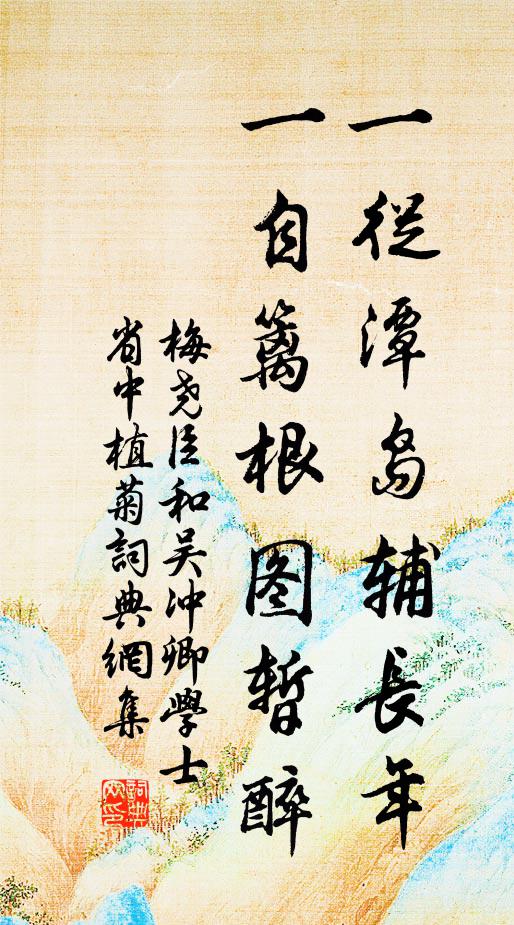 一從潭島辅長年
一自篱根图暫醉
梅尧臣和吴沖卿學士
省中植菊詞典網集
詞典網印